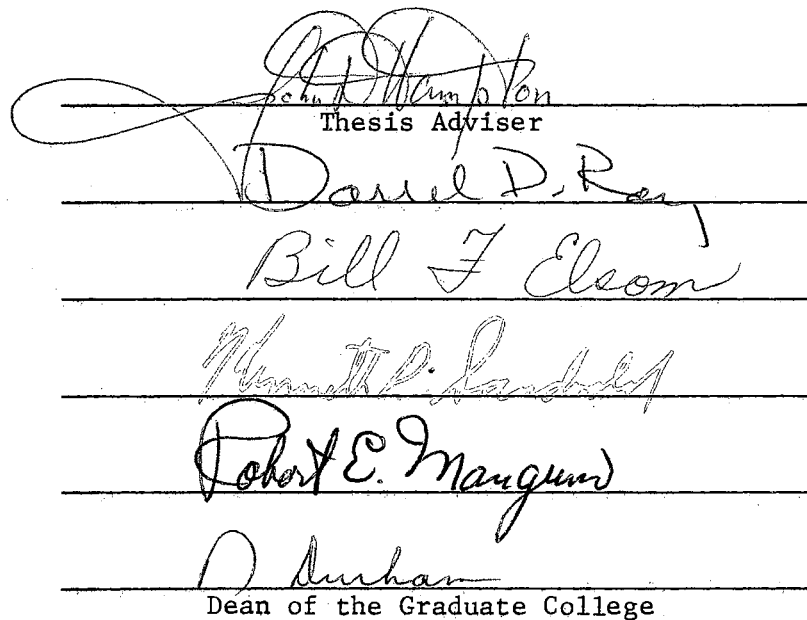 John D Hampton
Thesis Adviser
Darrel D. Ray
Bill F Elsom
Kenneth D.
Robert E. Mangum
D Durham
Dean of the Graduate College